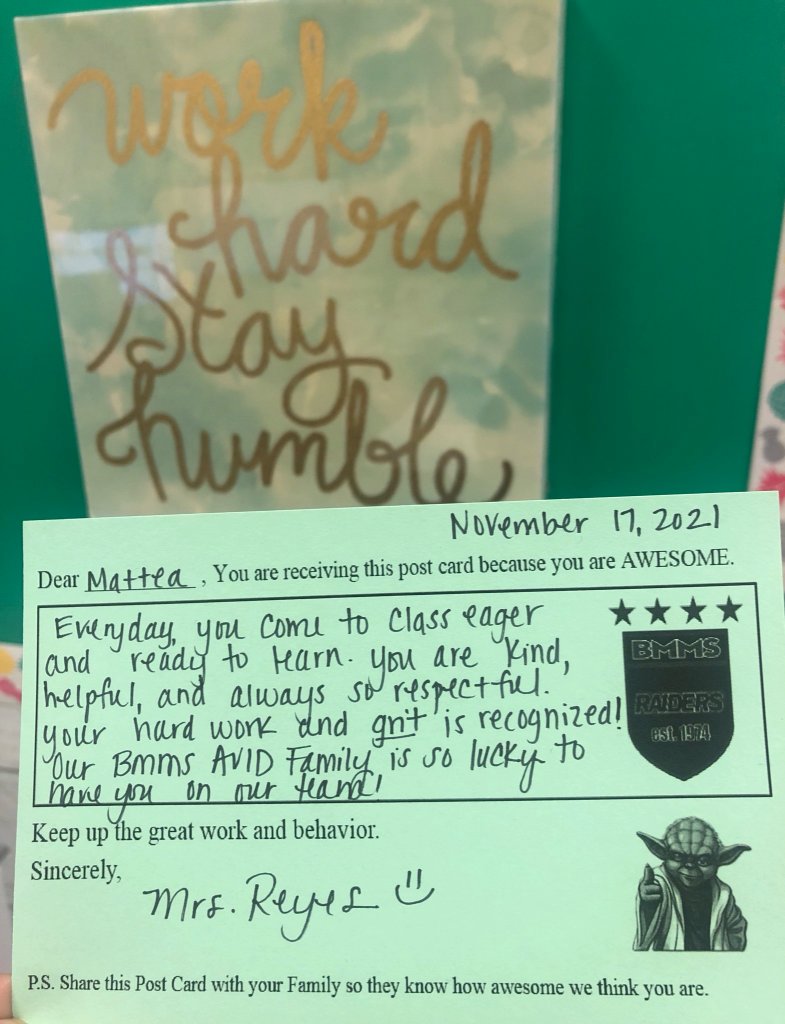 work
hard
Stay
humble
November 17, 2021
Dear Mattea, You are receiving this post card because you are AWESOME.
Everyday, you come to class eager
and ready to learn. you are kind,
helpful, and always so respectful.
your hard work and grit is recognized!
Our BMMS AVID Family is so lucky to
have you on our team!
BMMS
RAIDERS
est. 1974
Keep up the great work and behavior.
Sincerely,
Mrs. Reyes
P.S. Share this Post Card with your Family so they know how awesome we think you are.